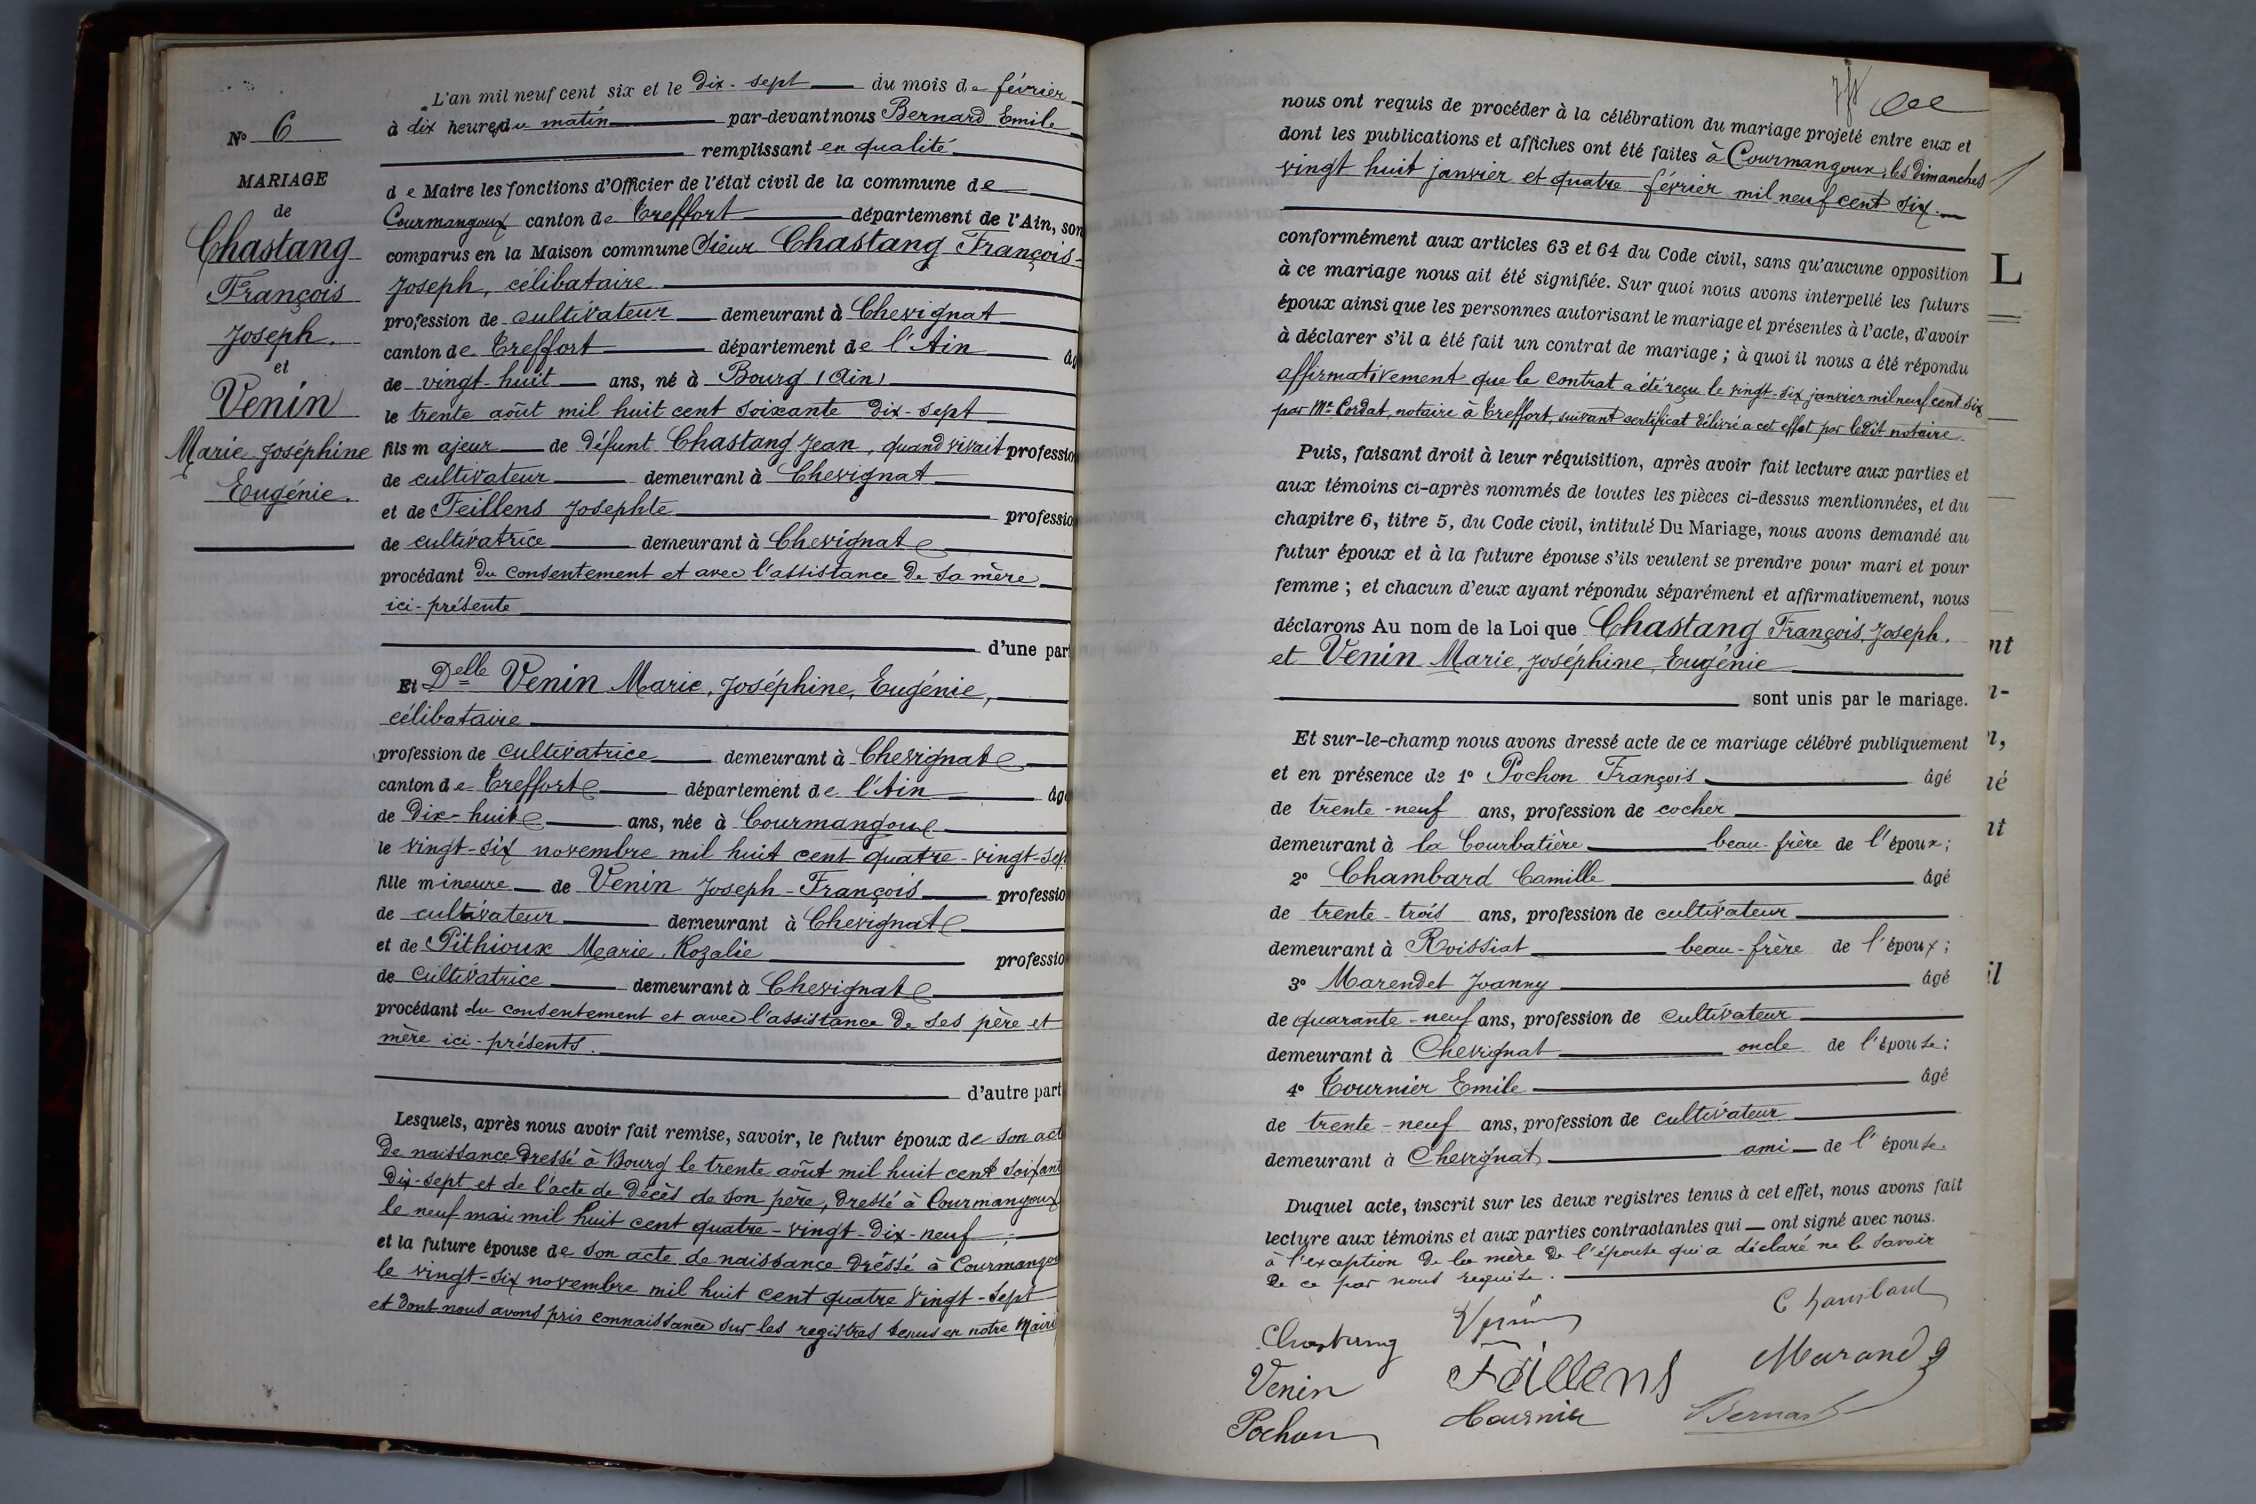 N° 6
MARIAGE
de
Chastang
François
Joseph.
et
Venin
Marie Joséphine
Eugénie.
L'an mil neuf cent six et le dix-sept du mois de février
à dix heures du matin par-devant nous Bernard Emile
remplissant en qualité
de Maire les fonctions d'Officier de l'état civil de la commune de
Courmangoux canton de Treffort département de l'Ain, son
comparus en la Maison commune Sieur Chastang François-
Joseph, célibataire
profession de cultivateur demeurant à Chevignat
canton de Treffort département de l'Ain âg
de vingt-huit ans, né à Bourg (Ain)
le trente août mil huit cent soixante dix-sept
fils majeur de défunt Chastang Jean, quand vivait professio
de cultivateur demeurant à Chevignat
et de Feillens Josephte professio
de cultivatrice demeurant à Chevignat
procédant du consentement et avec l'assistance de sa mère
ici-présente
d'une par
Et Delle Venin Marie, Joséphine, Eugénie,
célibataire
profession de cultivatrice demeurant à Chevignat
canton de Treffort département de l'Ain âgé
de dix-huit ans, née à Courmangoux
le vingt-six novembre mil huit cent quatre-vingt-sept
fille mineure de Venin Joseph-François professio
de cultivateur demeurant à Chevignat
et de Pithioux Marie, Rozalie professio
de cultivatrice demeurant à Chevignat
procédant du consentement et avec l'assistance de ses père et
mère ici-présents.
d'autre part
Lesquels, après nous avoir fait remise, savoir, le futur époux de son act
de naissance dressé à Bourg le trente août mil huit cent soixant
dix-sept et de l'acte de décès de son père, dressé à Courmangoux
le neuf mai mil huit cent quatre-vingt-dix-neuf;
et la future épouse de son acte de naissance dressé à Courmangou
le vingt-six novembre mil huit cent quatre vingt-sept
et dont nous avons pris connaissance sur les registres tenus en notre Mairi
nous ont requis de procéder à la célébration du mariage projeté entre eux et
dont les publications et affiches ont été faites à Courmangoux, les dimanches
vingt huit janvier et quatre février mil neuf cent six.
conformément aux articles 63 et 64 du Code civil, sans qu'aucune opposition
à ce mariage nous ait été signifiée. Sur quoi nous avons interpellé les futurs
époux ainsi que les personnes autorisant le mariage et présentes à l'acte, d'avoir
à déclarer s'il a été fait un contrat de mariage; à quoi il nous a été répondu
affirmativement que le contrat a été reçu le vingt-six janvier mil neuf cent six
par Me Cordat, notaire à Treffort, suivant certificat délivré a cet effet par ledit notaire.
Puis, faisant droit à leur réquisition, après avoir fait lecture aux parties et
aux témoins ci-après nommés de toutes les pièces ci-dessus mentionnées, et du
chapitre 6, titre 5, du Code civil, intitulé Du Mariage, nous avons demandé au
futur époux et à la future épouse s'ils veulent se prendre pour mari et pour
femme; et chacun d'eux ayant répondu séparément et affirmativement, nous
déclarons Au nom de la Loi que Chastang François, Joseph.
et Venin Marie, Joséphine, Eugénie
sont unis par le mariage.
Et sur-le-champ nous avons dressé acte de ce mariage célébré publiquement
et en présence de 1° Pochon François âgé
de trente-neuf ans, profession de cocher
demeurant à la Courbatière beau-frère de l'époux;
2° Chambard Camille âgé
de trente-trois ans, profession de cultivateur
demeurant à Roissiat beau-frère de l'époux;
3° Marendet Joanny âgé
de quarante-neuf ans, profession de cultivateur
demeurant à Chevignat oncle de l'épouse;
4° Tournier Emile âgé
de trente-neuf ans, profession de cultivateur
demeurant à Chevignat ami de l'épouse.
Duquel acte, inscrit sur les deux registres tenus à cet effet, nous avons fait
lecture aux témoins et aux parties contractantes qui ont signé avec nous.
à l'exception de la mère de l'épouse qui a déclaré ne le savoir
de ce par nous requise.
Chastang Venin C Chambard
Venin Feillens
Pochon Tournier Bernard
L
nt
n-
n,
né
nt
il